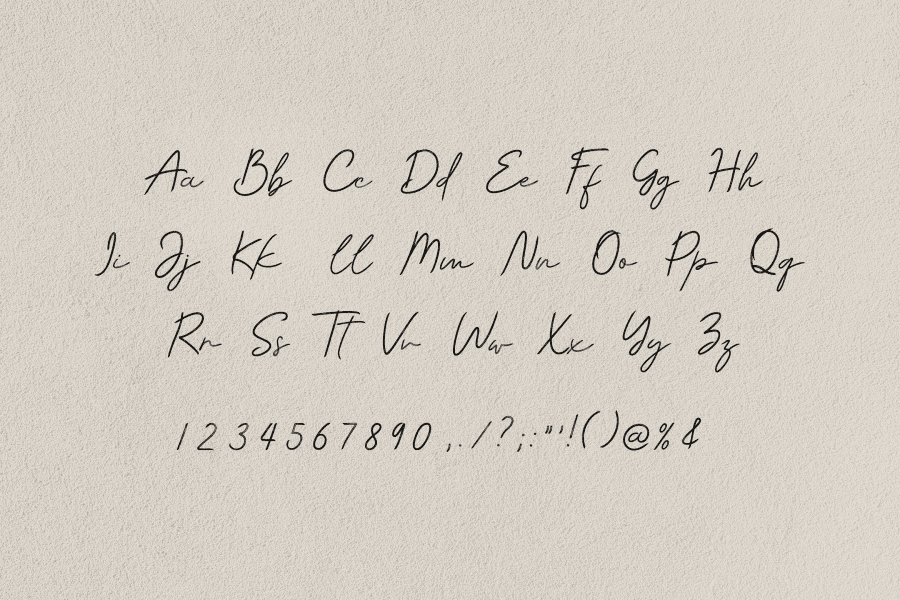 Aa Bb Cc Dd Ee Ff Gg Hh
Ii Jj Kk Ll Mm Nn Oo Pp Qq
Rr Ss Tt Vv Ww Xx Yy Zz
1 2 3 4 5 6 7 8 9 0 , . / ? ; : " ' ! ( ) @ % &